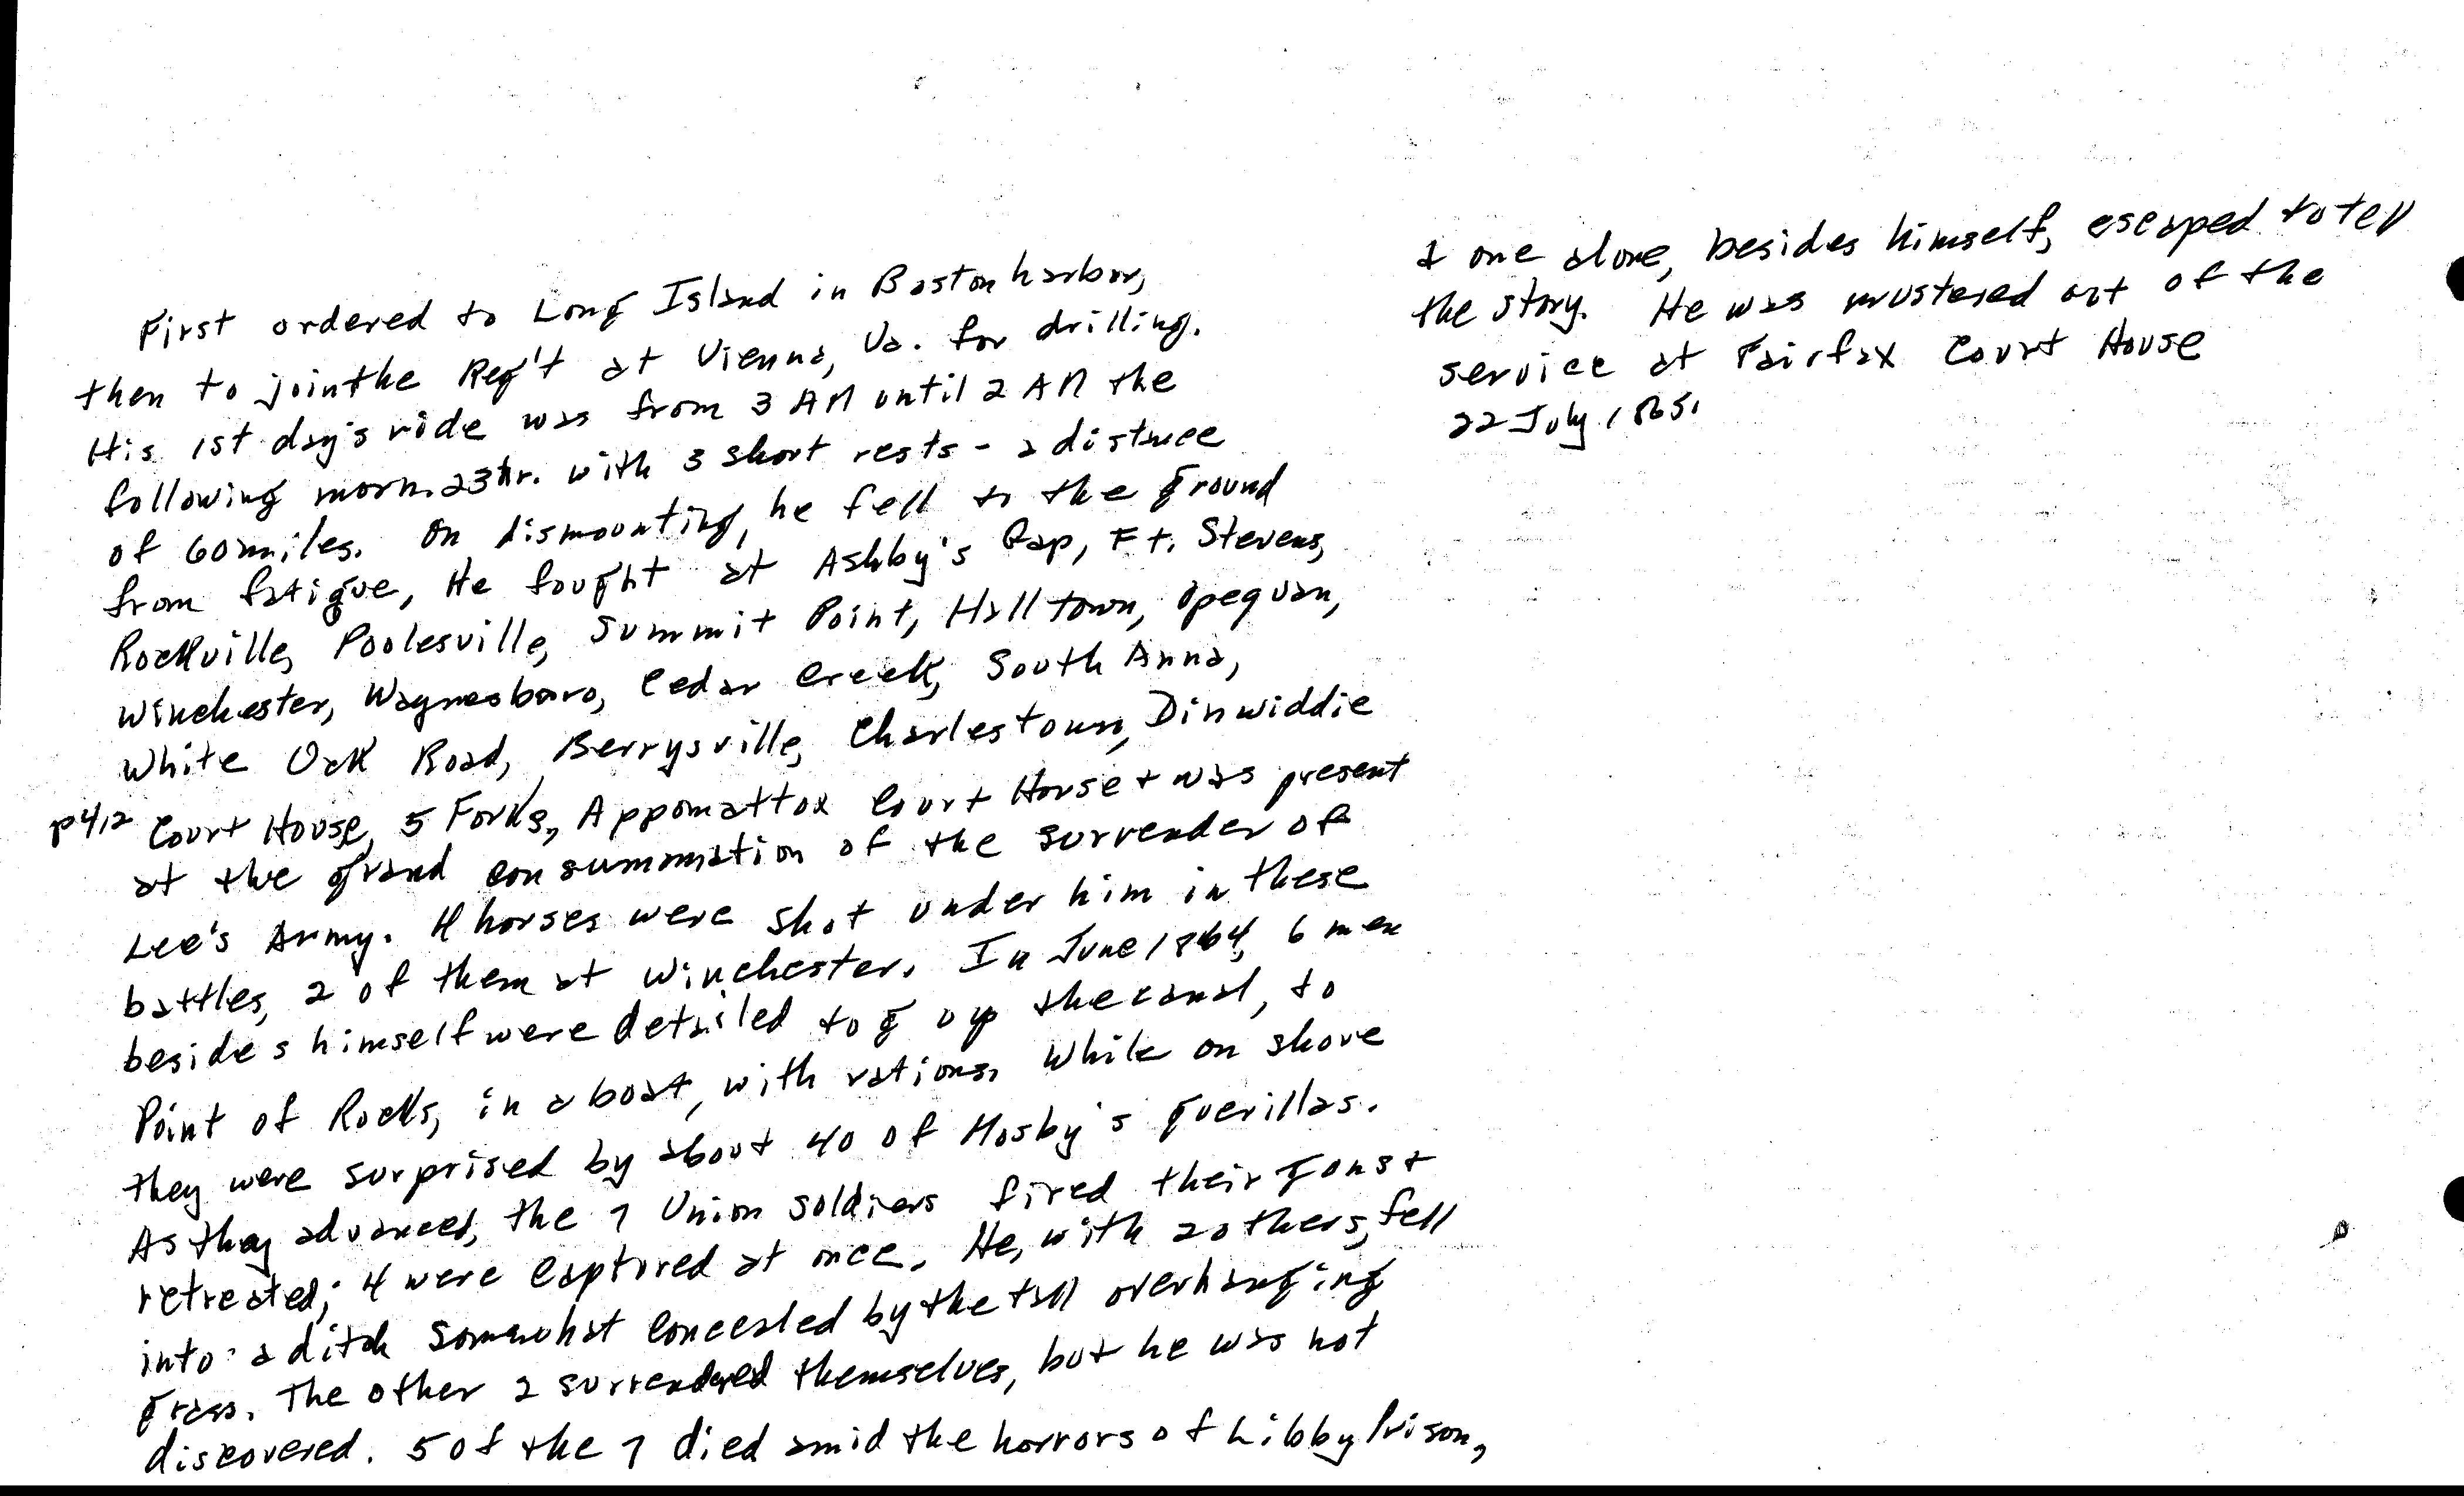 First ordered to Long Island in Boston harbor,
then to join the Reg't at Vienna, Va. for drilling.
His 1st day's ride was from 3 AM until 2 AM the
following morn. 23 hr. with 3 short rests - a distance
of 60 miles. On dismounting, he fell to the ground
from fatigue, He fought at Ashby's Gap, Ft. Stevens,
Rockville, Poolesville, Summit Point, Halltown, Opequan,
Winchester, Waynesboro, Cedar Creek, South Anna,
White Oak Road, Berrysville, Charlestown, Dinwiddie
p412 Court House, 5 Forks, Appomattox Court House + was present
at the grand consummation of the surrender of
Lee's Army. 4 horses were shot under him in these
battles, 2 of them at Winchester. In June 1864, 6 men
besides himself were detailed to g up the canal, to
Point of Rocks, in a boat, with rations. While on shore
they were surprised by about 40 of Mosby's guerillas.
As they advanced, the 7 Union soldiers fired their guns +
retreated; 4 were captured at once. He, with 2 others, fell
into a ditch somewhat concealed by the tall overhanging
grass. The other 2 surrendered themselves, but he was not
discovered. 5 of the 7 died amid the horrors of Libby Prison,
& one alone, besides himself, escaped to tell
the story. He was mustered out of the
service at Fairfax Court House
22 July 1865.